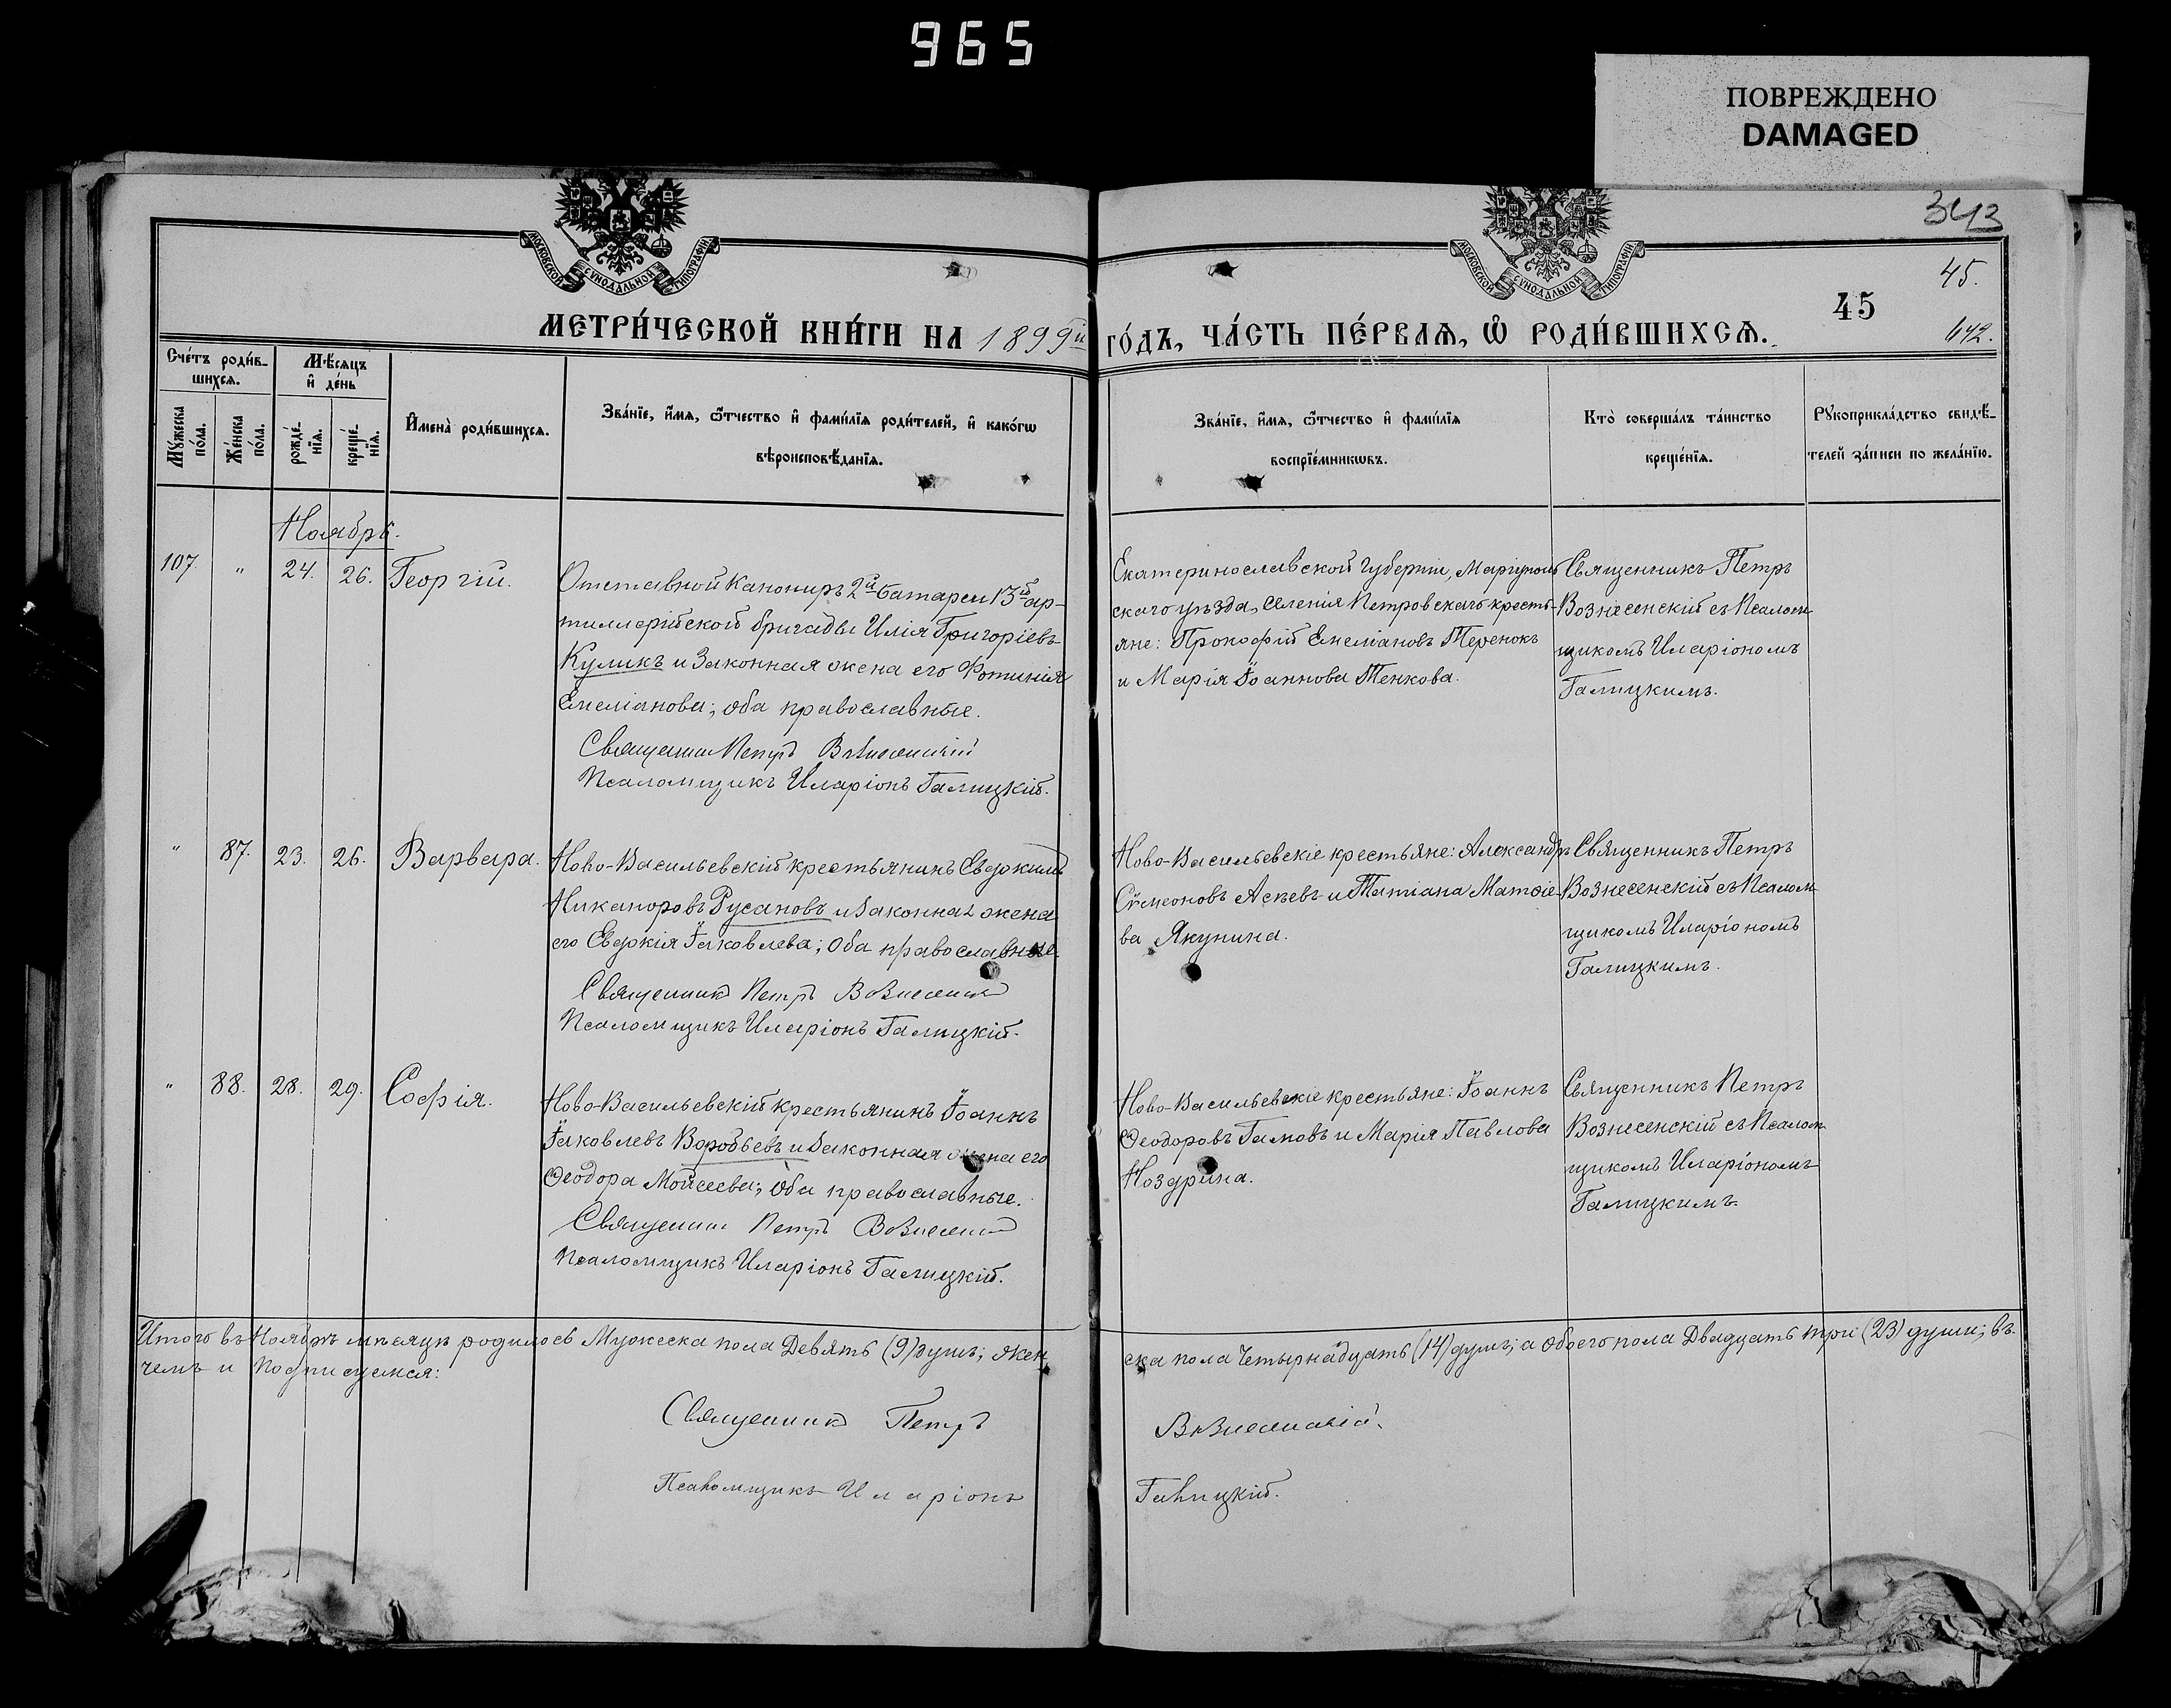 965
ПОВРЕЖДЕНО
DAMAGED
343
МОСКОВСКОЙ СУНОДАЛЬНОЙ ТИПОГРАФІИ
МОСКОВСКОЙ СУНОДАЛЬНОЙ ТИПОГРАФІИ
45.
45
642.
МЕТРИ́ЧЕСКОЙ КНИ́ГИ НА 1899й го́дъ, ча́сть пе́рваѧ, ѡ҆ роди́вшихсѧ.
Сче́тъ роди́в-
шихсѧ.
Мѣ́сѧцъ
и҆ де́нь
Мꙋ́жеска
по́ла.
Же́нска
по́ла.
рожде́-
нїѧ.
креще́-
нїѧ.
И҆мена̀ роди́вшихсѧ.
Зва́нїе, и҆́мѧ, ѻ҆́тчество и҆ фами́лїѧ роди́телей, и҆ како́гѡ
вѣроисповѣ́данїѧ.
Зва́нїе, и҆́мѧ, ѻ҆́тчество и҆ фами́лїѧ
воспрїе́мникѡвъ.
Кто̀ соверша́лъ та́инство
креще́нїѧ.
Рꙋкоприкла́дство свидѣ́-
телей за́писи по жела́нїю.
Ноябрь.
107. " 24. 26. Георгій.
Отставной Канониръ 2й батареи 13й ар-
тиллерійской бригады Илія Григоріевъ
Куликъ и законная жена его Фотинія
Емеліанова; оба православные.
Священникъ Петръ Вознесенскій
Псаломщикъ Иларіонъ Галицкій.
Екатеринославской губерніи, Маріуполь-
скаго уѣзда, селенія Петровскаго кресть-
яне: Прокофій Емеліановъ Теренокъ
и Марія Іоаннова Тенкова.
Священникъ Петръ
Вознесенскій съ Псалом-
щикомъ Иларіономъ
Галицкимъ.
" 87. 23. 26. Варвара.
Ново-Васильевскій крестьянинъ Евдокимъ
Никаноровъ Русановъ и законная жена
его Евдокія Іаковлева; оба православные.
Священникъ Петръ Вознесенскій
Псаломщикъ Иларіонъ Галицкій.
Ново-Васильевскіе крестьяне: Александръ
Сѵмеоновъ Асѣевъ и Татіана Матѳіе-
ва Якунина.
Священникъ Петръ
Вознесенскій съ Псалом-
щикомъ Иларіономъ
Галицкимъ.
" 88. 28. 29. Софія.
Ново-Васильевскій крестьянинъ Іоаннъ
Іаковлевъ Воробьевъ и законная жена его
Ѳеодора Моисеева; оба православные.
Священникъ Петръ Вознесенскій
Псаломщикъ Иларіонъ Галицкій.
Ново-Васильевскіе крестьяне: Іоаннъ
Ѳеодоровъ Гамовъ и Марія Павлова
Ноздрина.
Священникъ Петръ
Вознесенскій съ Псалом-
щикомъ Иларіономъ
Галицкимъ.
Итого въ Ноябрѣ мѣсяцѣ родилось Мужеска пола Девять (9) душъ; жен-
ска пола Четырнадцать (14) душъ; а обоего пола Двадцать три (23) души; въ
чемъ и подписуемся:
Священникъ Петръ Вознесенскій.
Псаломщикъ Иларіонъ Галицкій.